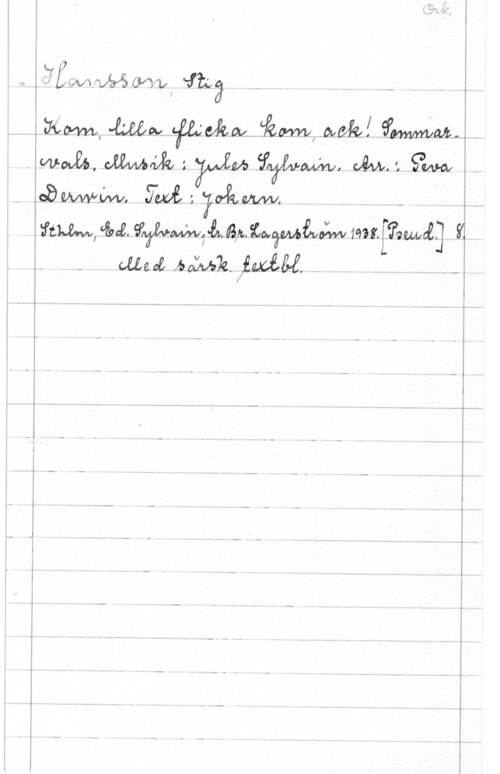 Ork.
Hansson, Stig
Kom, lilla flicka kom, ack! Sommar-
vals, Musik: Jules Sylvain. Arr.: Peva
Derwin. Text: Jokern.
Sthlm, Ed. Sylvain, tr. Br. Lagerström 1938. [Pseud.] 8.
Med särsk. textbl.